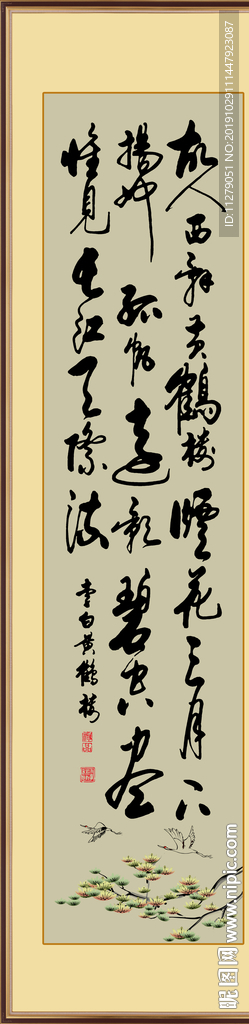 故人西辞黄鹤楼烟花三月下
扬州孤帆远影碧空尽
惟见长江天际流
李白黄鹤楼
ID:11279051 NO:20191029111447923087
昵图网 www.nipic.com